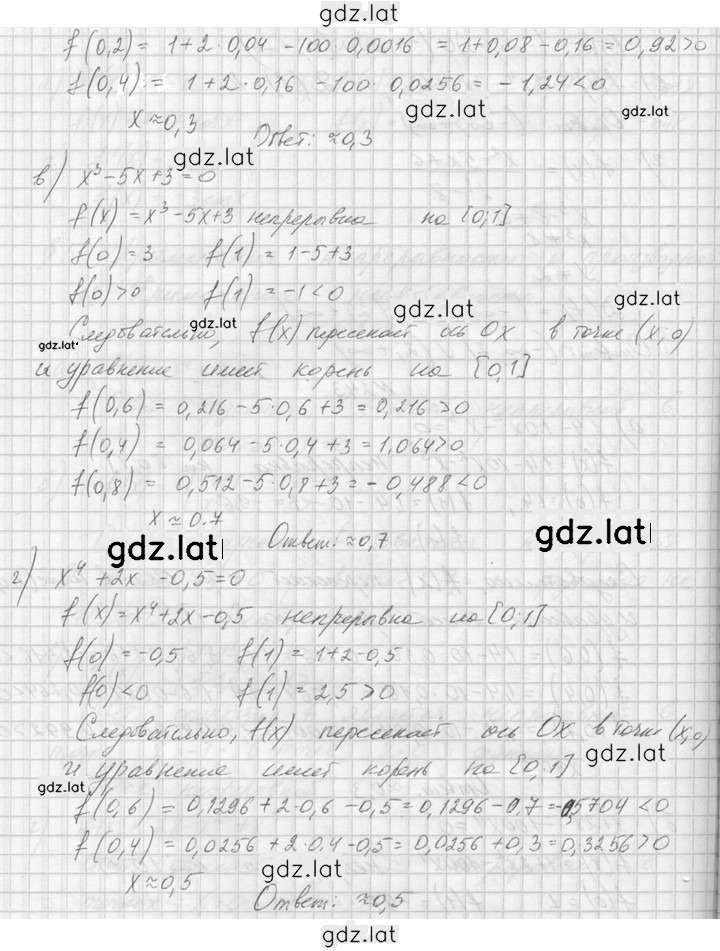 gdz.lat
f(0,2) = 1+2·0,04 -100·0,0016 = 1+0,08-0,16 = 0,92>0
f(0,4) = 1+2·0,16 -100·0,0256 = -1,24<0
gdz.lat
gdz.lat
x≈0,3
Ответ: ≈0,3
gdz.lat
в) x³-5x+3=0
f(x) = x³-5x+3 непрерывна на [0;1]
gdz.lat
f(0) = 3 f(1) = 1-5+3
f(0)>0 f(1) = -1<0
gdz.lat
gdz.lat
gdz.lat
Следовательно, f(x) пересекает ось Ox в точке (x,0)
gdz.lat
и уравнение имеет корень на [0,1]
f(0,6) = 0,216-5·0,6+3 = 0,216>0
f(0,4) = 0,064-5·0,4+3 = 1,064>0
f(0,8) = 0,512-5·0,8+3 = -0,488<0
x≈0.7
Ответ: ≈0,7
gdz.lat
gdz.lat
г) x⁴+2x-0,5=0
f(x) = x⁴+2x-0,5 непрерывна на [0;1]
f(0) = -0,5 f(1) = 1+2-0,5
f(0)<0 f(1) = 2,5>0
Следовательно, f(x) пересекает ось Ox в точке (x,0)
gdz.lat
и уравнение имеет корень на [0,1]
gdz.lat
f(0,6) = 0,1296+2·0,6-0,5 = 0,1296-0,7 = -0,5704<0
f(0,4) = 0,0256+2·0.4-0,5 = 0,0256+0,3 = 0,3256>0
gdz.lat
x≈0,5
Ответ: ≈0,5
gdz.lat